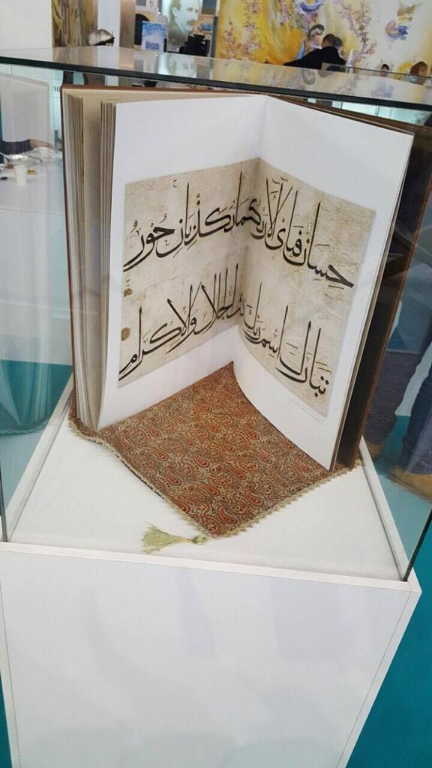 حسان فبأي آلاء ربكما تكذبان حور
تبارك اسم ربك ذي الجلال والاكرام